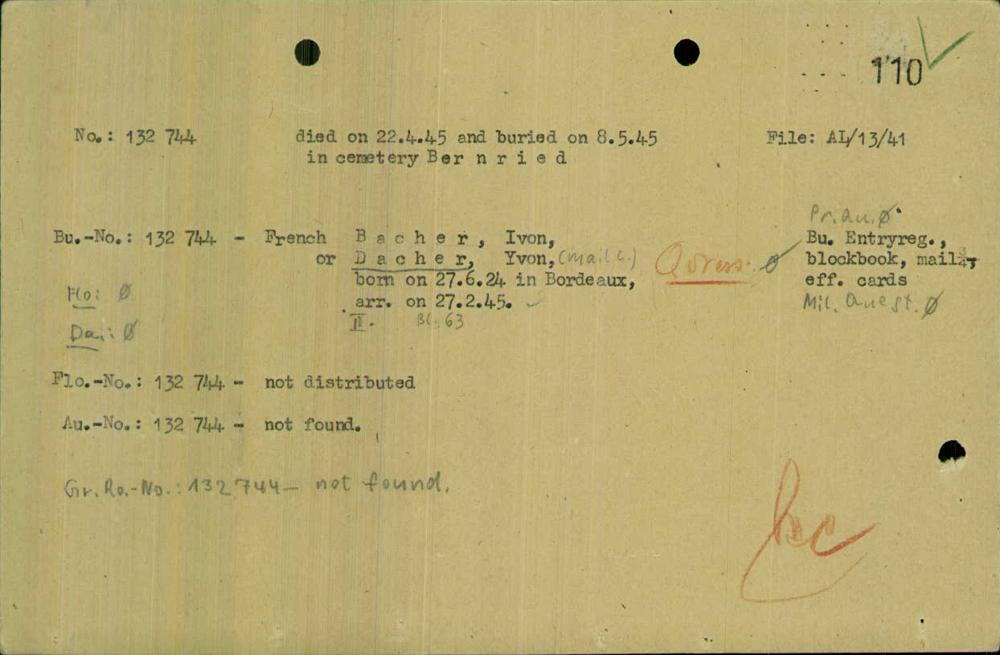 110
No.: 132 744 died on 22.4.45 and buried on 8.5.45 File: AL/13/41
in cemetery B e r n r i e d
Pr.Au.Ø
Bu.-No.: 132 744 - French B a c h e r, Ivon, Bu. Entryreg.,
or D a c h e r, Yvon, (mail c.) Ø blockbook, mail-,
born on 27.6.24 in Bordeaux, eff. cards
Flo: Ø arr. on 27.2.45. Mil. Quest. Ø
II. Bl. 63
Da.: Ø
Flo.-No.: 132 744 - not distributed
Au.-No.: 132 744 - not found.
Gr. Ro.-No.: 132 744 - not found.